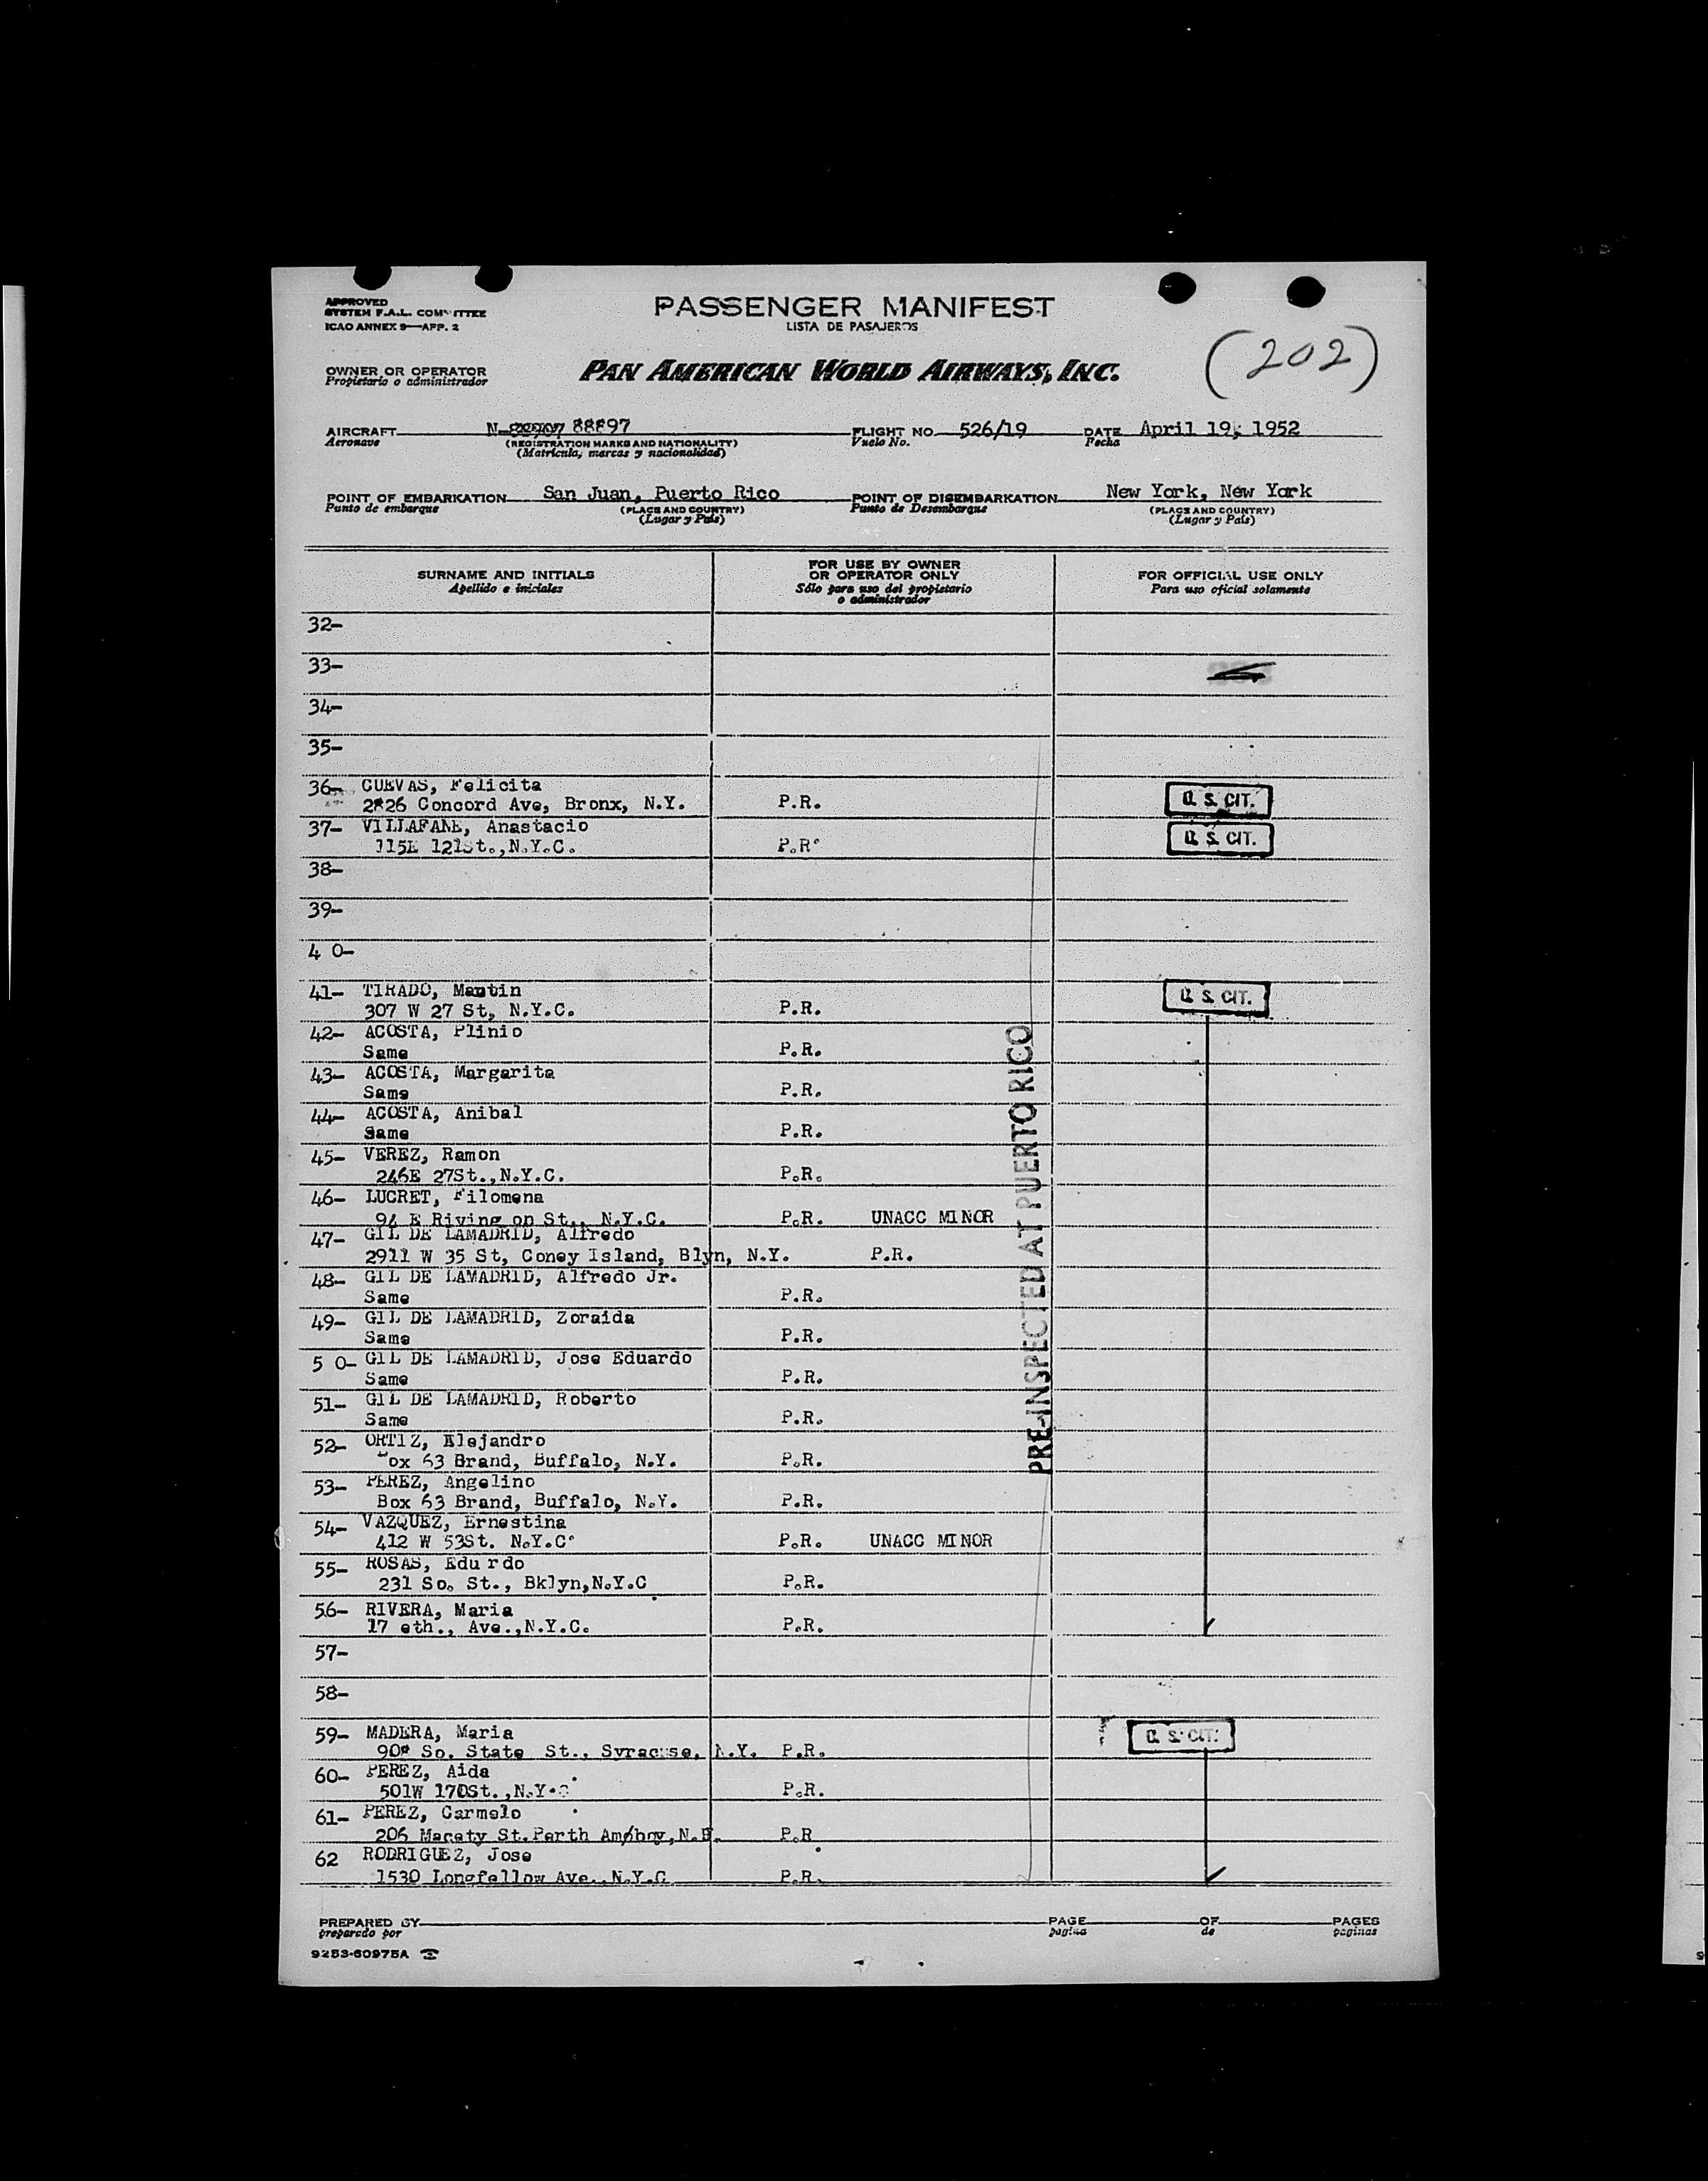 APPROVED
SYSTEM F.A.L. COMMITTEE
ICAO ANNEX 9—APP. 2
PASSENGER MANIFEST
LISTA DE PASAJEROS
(202)
OWNER OR OPERATOR
Propietario o administrador
PAN AMERICAN WORLD AIRWAYS, INC.
AIRCRAFT N- 88897
Aeronave
(REGISTRATION MARKS AND NATIONALITY)
(Matrícula, marcas y nacionalidad)
FLIGHT NO. 526/19
Vuelo No.
DATE April 19, 1952
Fecha
POINT OF EMBARKATION San Juan, Puerto Rico
Punto de embarque
(PLACE AND COUNTRY)
(Lugar y País)
POINT OF DISEMBARKATION New York, New York
Punto de Desembarque
(PLACE AND COUNTRY)
(Lugar y País)
SURNAME AND INITIALS
Apellido e iniciales
FOR USE BY OWNER
OR OPERATOR ONLY
Sólo para uso del propietario
o administrador
FOR OFFICIAL USE ONLY
Para uso oficial solamente
32-
33-
34-
35-
36- CUEVAS, Felicita
2826 Concord Ave, Bronx, N.Y. P.R. U. S. CIT.
37- VILLAFANE, Anastacio
115E 121St.,N.Y.C. P.R. U. S. CIT.
38-
39-
4 0-
41- TIRADO, Mantin
307 W 27 St, N.Y.C. P.R. U. S. CIT.
42- ACOSTA, Plinio
Same P.R.
43- ACOSTA, Margarita
Same P.R.
44- ACOSTA, Anibal
Same P.R.
45- VEREZ, Ramon
246E 27St.,N.Y.C. P.R.
46- LUCRET, Filomena
94 E Riving on St., N.Y.C. P.R. UNACC MINOR
47- GIL DE LAMADRID, Alfredo
2911 W 35 St, Coney Island, Blyn, N.Y. P.R.
48- GIL DE LAMADRID, Alfredo Jr.
Same P.R.
49- GIL DE LAMADRID, Zoraida
Same P.R.
5 0- GIL DE LAMADRID, Jose Eduardo
Same P.R.
51- GIL DE LAMADRID, Roberto
Same P.R.
52- ORTIZ, Alejandro
Box 63 Brand, Buffalo, N.Y. P.R.
53- PEREZ, Angelino
Box 63 Brand, Buffalo, N.Y. P.R.
54- VAZQUEZ, Ernestina
412 W 53St. N.Y.C. P.R. UNACC MINOR
55- ROSAS, Edu rdo
231 So. St., Bklyn,N.Y.C P.R.
56- RIVERA, Maria
17 eth., Ave.,N.Y.C. P.R.
57-
58-
59- MADERA, Maria
So. State St., Syracuse, N.Y. P.R. U. S. CIT.
60- PEREZ, Aida
501W 170St.,N.Y.C. P.R.
61- PEREZ, Carmelo
206 Macety St.Perth Amboy, P.R
62 RODRIGUEZ, Jose
1530 Longfellow Ave., N.Y.C P.R.
PRE-INSPECTED AT PUERTO RICO
PREPARED BY
preparado por
PAGE OF PAGES
pagina de paginas
9253-60975A